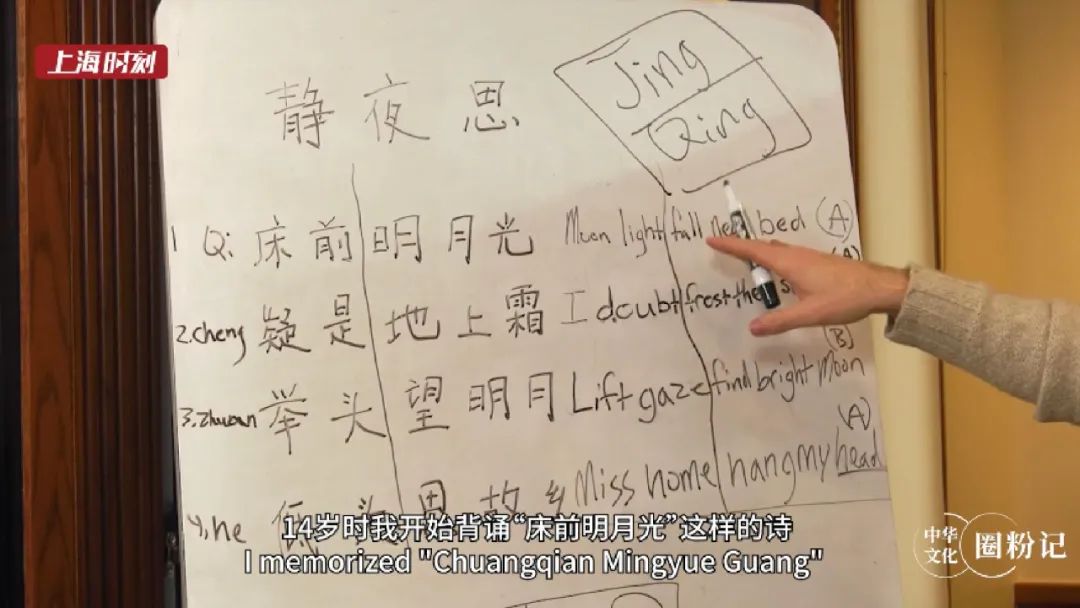 上海时刻
静夜思
Jing
Qing
1 Qi 床前明月光 Moon light fall near bed (A)
2. cheng 疑是地上霜 I doubt frost the (A)
3. Zhuan 举头望明月 Lift gaze find bright Moon (B)
4. he 低头思故乡 Miss home hang my head (A)
14岁时我开始背诵“床前明月光”这样的诗
I memorized "Chuangqian Mingyue Guang"
中华文化 圈粉记